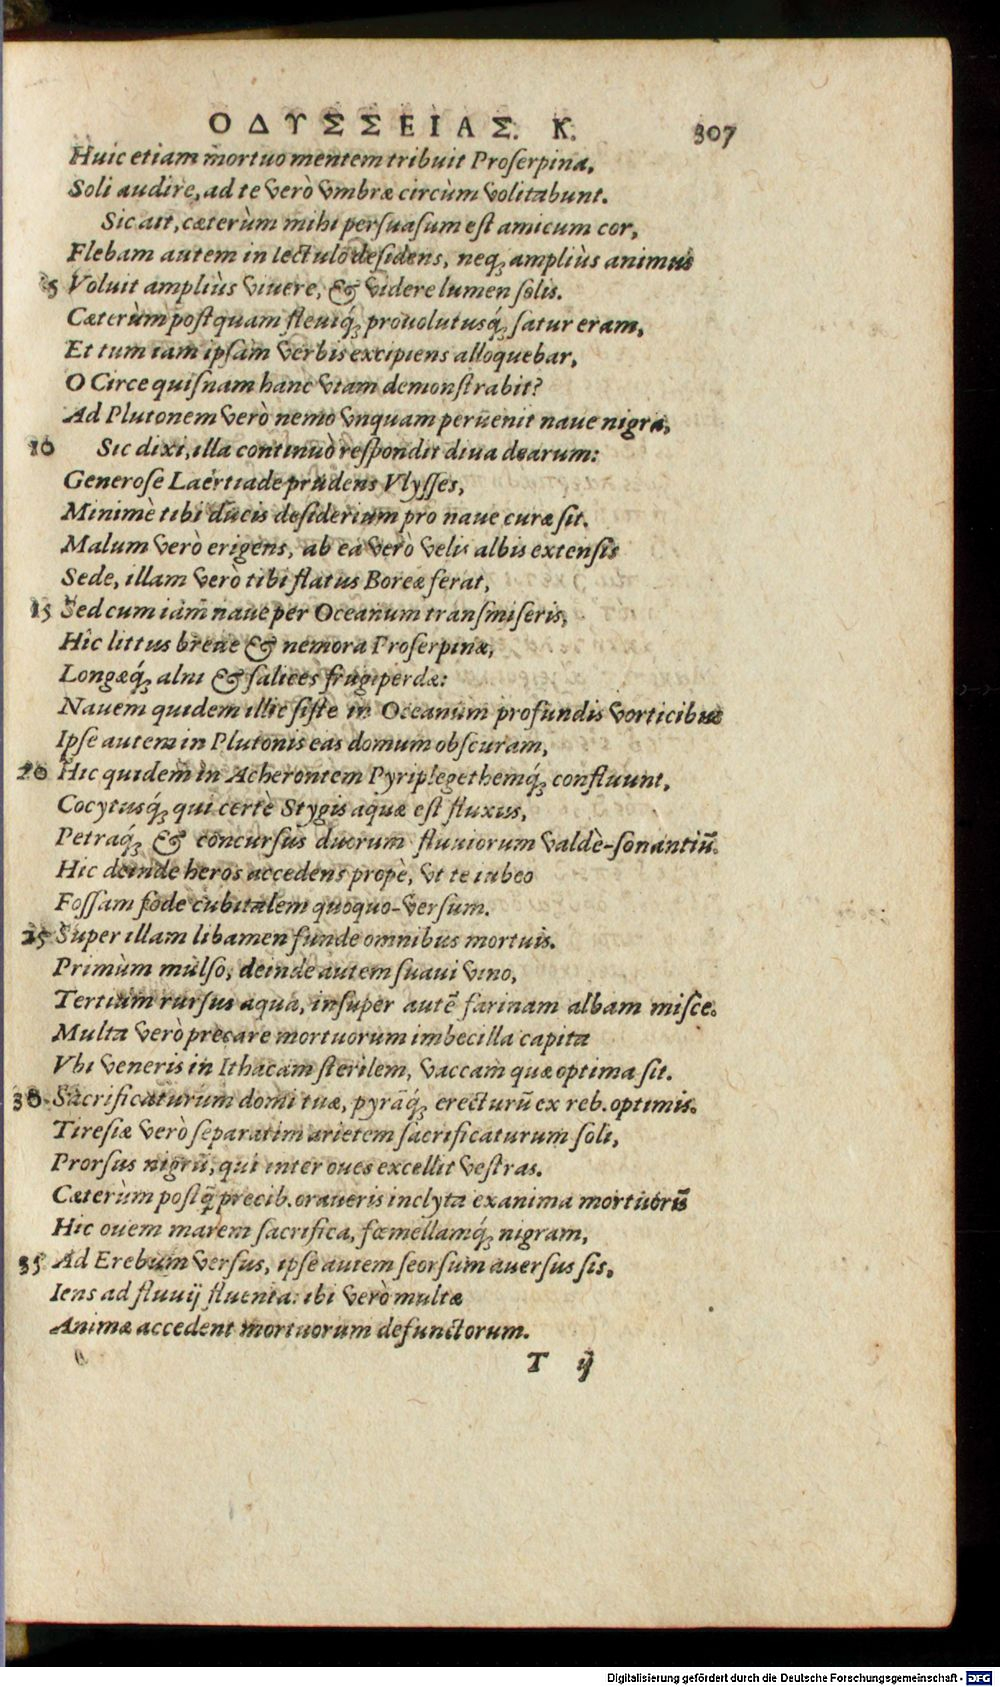 ΟΔΥΣΣΕΙΑΣ. Κ. 307
Huic etiam mortuo mentem tribuit Proserpina,
Soli audire, ad te verò vmbræ circùm volitabunt.
Sic ait, cæterùm mihi persuasum est amicum cor,
Flebam autem in lectulo desidens, neq; ampliùs animus
5 Voluit ampliùs viuere, & videre lumen solis.
Cæterùm postquam fleuiq́; prouolutusq́; satur eram,
Et tum iam ipsam verbis excipiens alloquebar,
O Circe quisnam hanc viam demonstrabit?
Ad Plutonem verò nemo vnquam peruenit naue nigra,
10 Sic dixi, illa continuò respondit diua dearum:
Generose Laërtiade prudens Vlysses,
Minimè tibi ducis desiderium pro naue curæ sit.
Malum verò erigens, ab ea verò velis albis extensis
Sede, illam verò tibi flatus Boreæ ferat,
15 Sed cum iam naue per Oceanum transmiseris,
Hic littus breue & nemora Proserpinæ,
Longæq́; alni & salices frugiperdæ:
Nauem quidem illic siste in Oceanum profundis vorticibus
Ipse autem in Plutonis eas domum obscuram,
20 Hic quidem in Acherontem Pyriplegethemq́; confluunt,
Cocytusq́; qui certè Stygis aquæ est fluxus,
Petraq́; & concursus duorum fluuiorum valdè-sonantiū.
Hic deinde heros accedens propè, vt te iubeo
Fossam fode cubitalem quoquo-versum.
25 Super illam libamen funde omnibus mortuis.
Primùm mulso, deinde autem suaui vino,
Tertium rursus aqua, insuper autē farinam albam misce.
Multa verò precare mortuorum imbecilla capita
Vbi veneris in Ithacam sterilem, vaccam quæ optima sit.
30 Sacrificaturum domi tuæ, pyrāq́; erecturū ex reb. optimis.
Tiresiæ verò separatim arietem sacrificaturum soli,
Prorsus nigrū, qui inter oues excellit vestras.
Cæterùm postq̄ precib. oraueris inclyta exanima mortuorū
Hic ouem marem sacrifica, fœmellamq́; nigram,
35 Ad Erebum versus, ipse autem seorsum auersus sis,
Iens ad fluuij fluenta: ibi verò multæ
Animæ accedent mortuorum defunctorum.
T ij
Digitalisierung gefördert durch die Deutsche Forschungsgemeinschaft - DFG